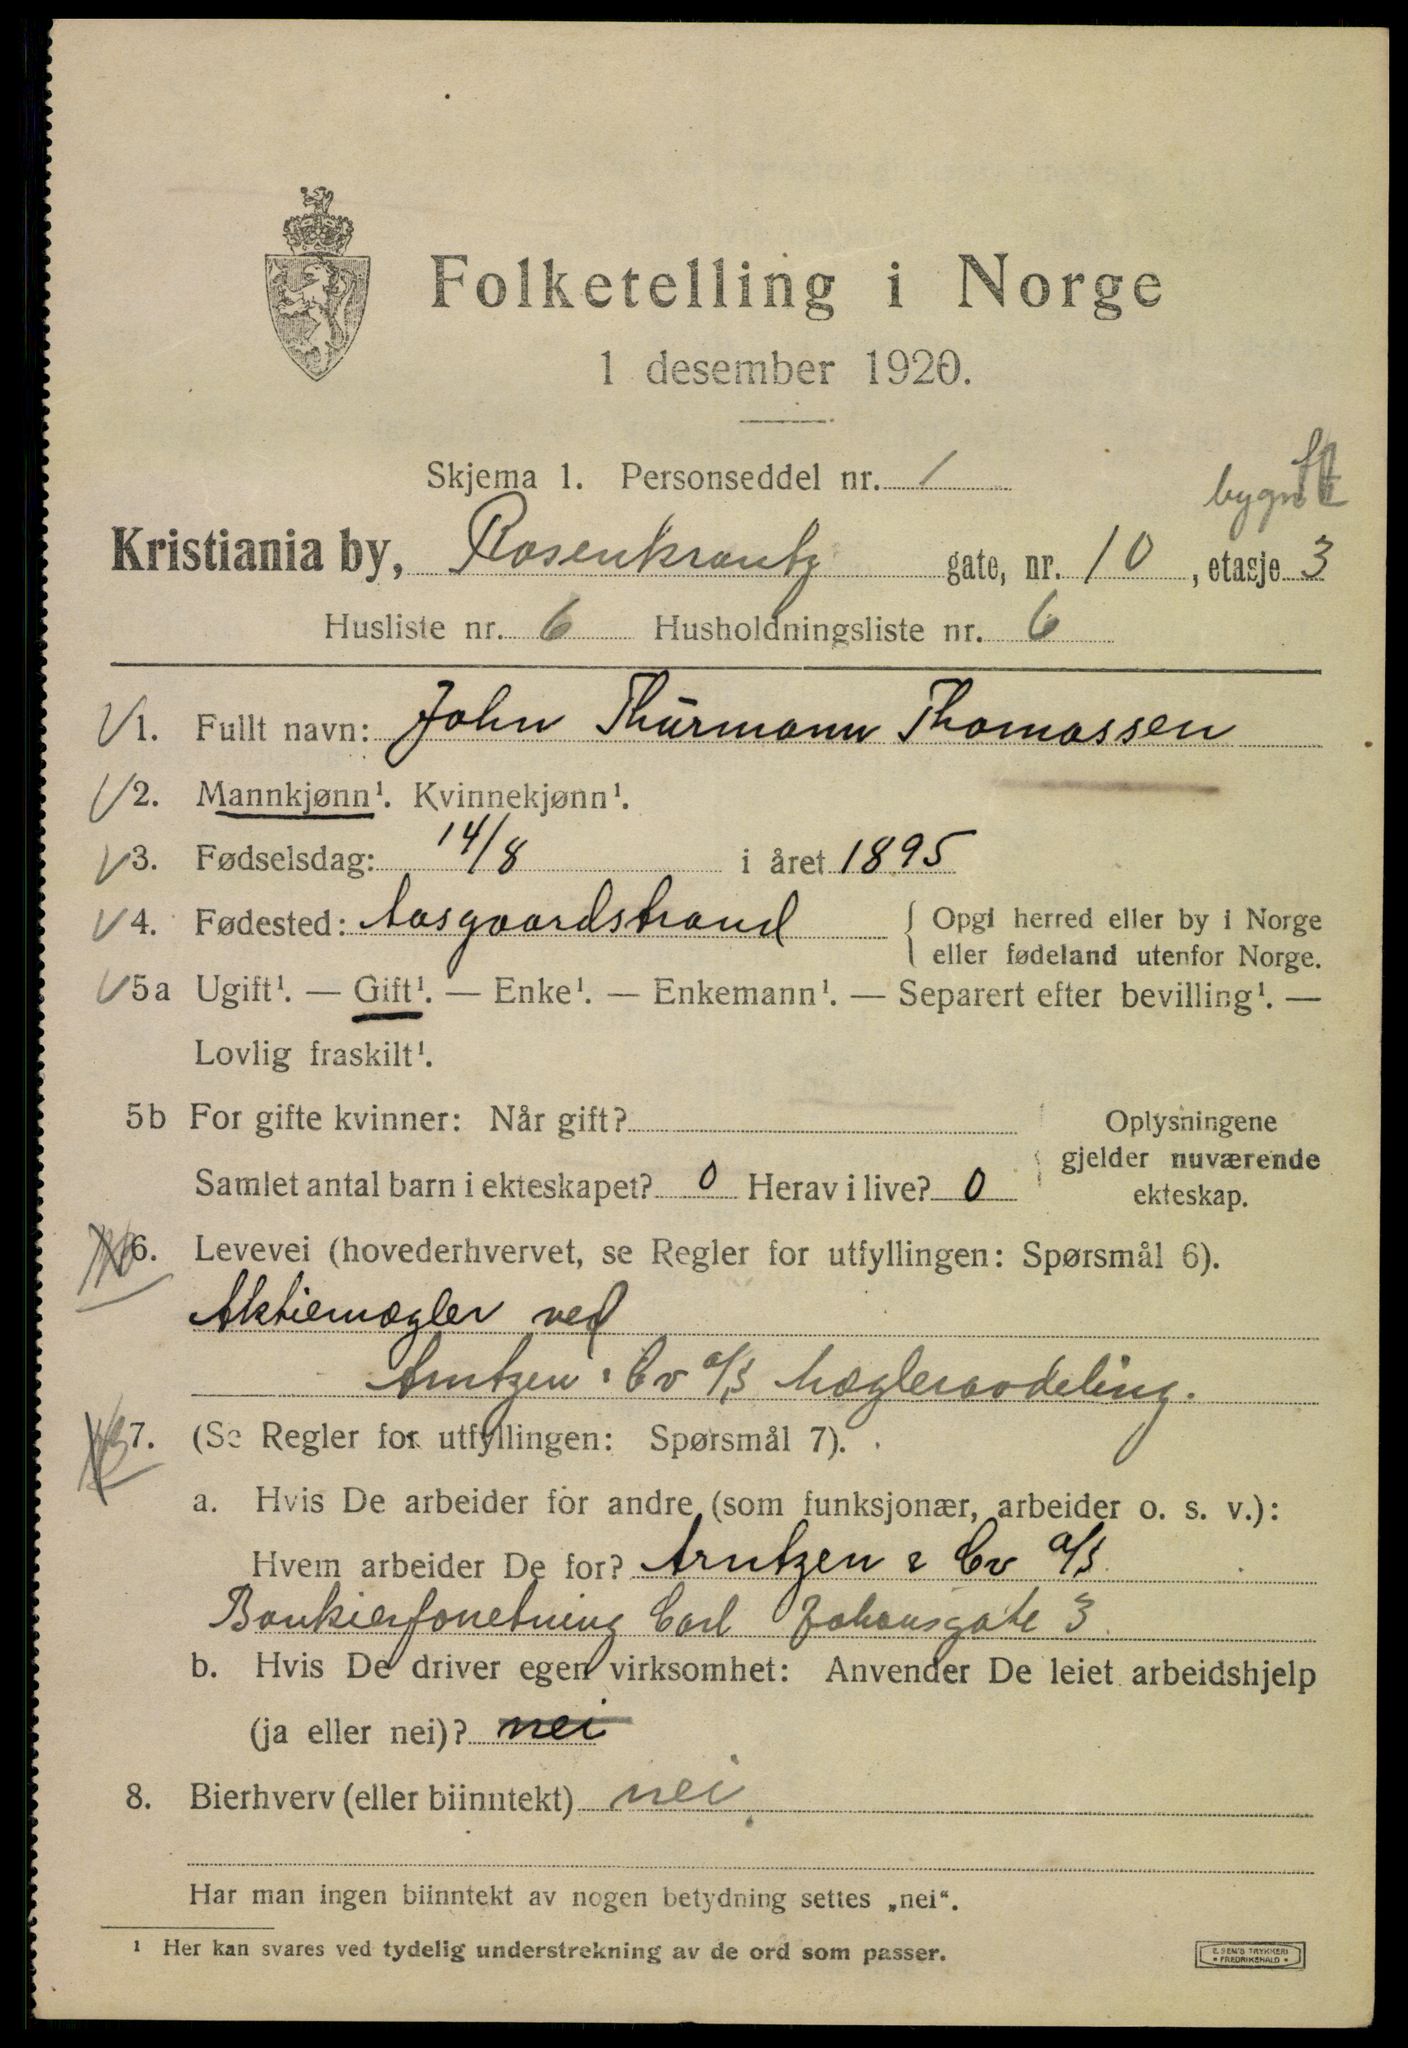 Folketelling i Norge
1 desember 1920.
Skjema 1. Personseddel nr. 1
Kristiania by, Rosenkrantz gate, nr. 10, etasje 3
Husliste nr. 6 Husholdningsliste nr. 6
1. Fullt navn: John Thürmann Thomassen
2. Mannkjønn¹. Kvinnekjønn¹.
3. Fødselsdag: 14/8 i året 1895
4. Fødested: Aasgaardstrand { Opgi herred eller by i Norge
eller fødeland utenfor Norge.
5a Ugift¹. — Gift¹. — Enke¹. — Enkemann¹. — Separert efter bevilling¹. —
Lovlig fraskilt¹.
5b For gifte kvinner: Når gift? Oplysningene
gjelder nuværende
Samlet antal barn i ekteskapet? 0 Herav i live? 0 ekteskap.
6. Levevei (hovederhvervet, se Regler for utfyllingen: Spørsmål 6).
Aktiemægler ved
Arntzen & Co a/s Mægleravdeling.
7. (Se Regler for utfyllingen: Spørsmål 7).
a. Hvis De arbeider for andre (som funksjonær, arbeider o. s. v.):
Hvem arbeider De for? Arntzen & Co a/s
Bankierforretning Carl Johansgate 3
b. Hvis De driver egen virksomhet: Anvender De leiet arbeidshjelp
(ja eller nei)? nei
8. Bierhverv (eller biinntekt) nei.
Har man ingen biinntekt av nogen betydning settes „nei“.
¹ Her kan svares ved tydelig understrekning av de ord som passer.
E. SEM'S TRYKKERI
• FREDRIKSHALD •